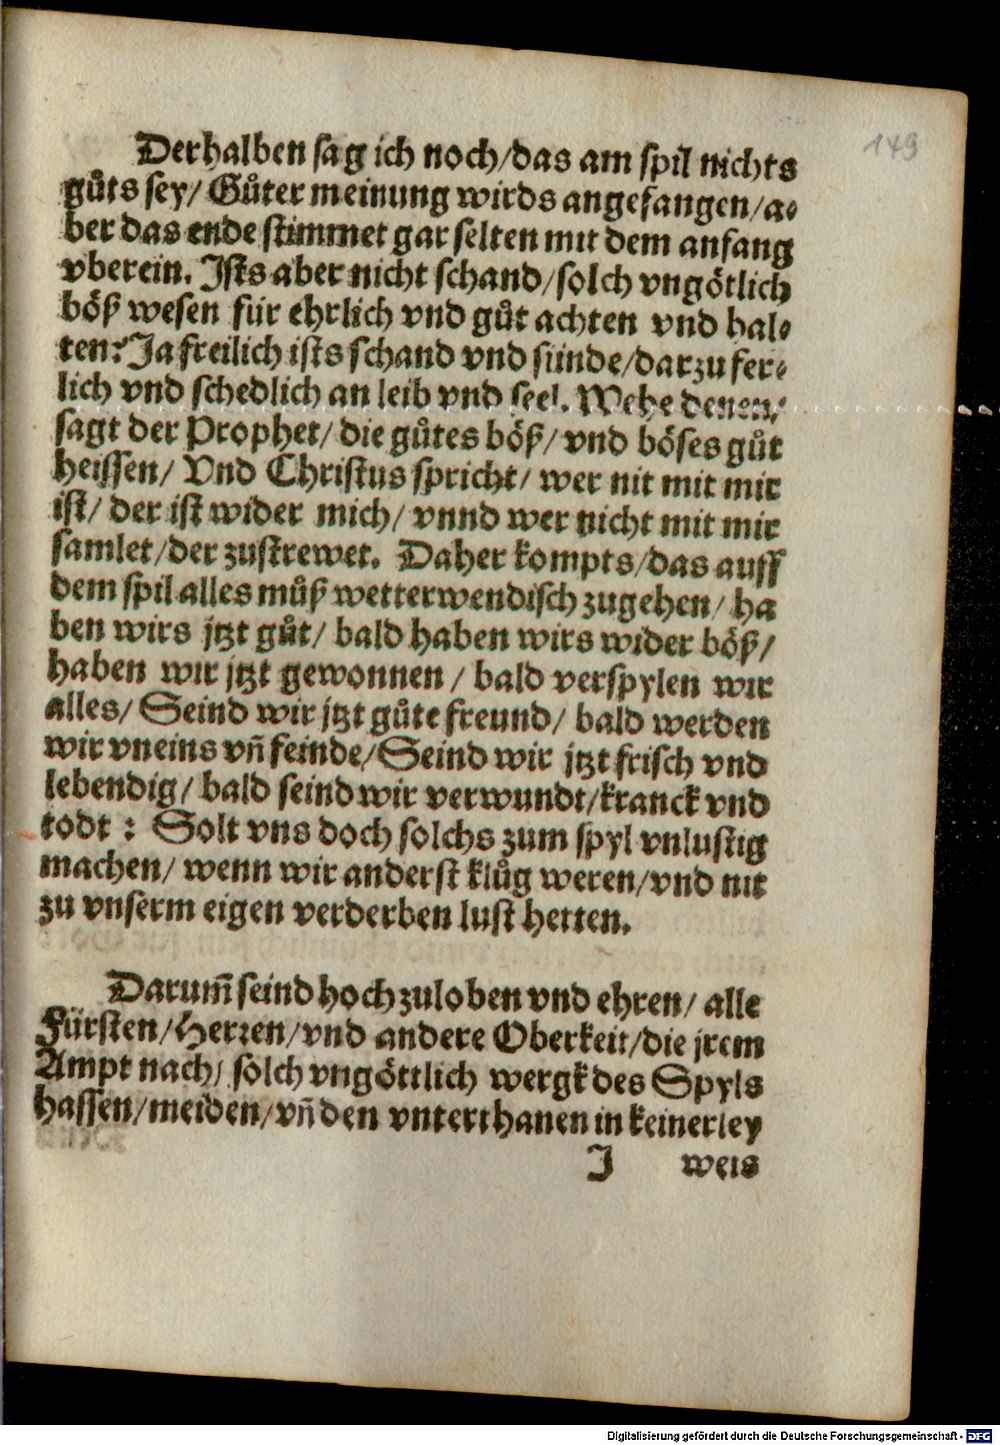 149
Derhalben sag ich noch/das am spil nichts
gůts sey/ Gůter meinung wirds angefangen/a⸗
ber das ende stimmet gar selten mit dem anfang
vberein. Ists aber nicht schand/solch vngötlich
böß wesen für ehrlich vnd gůt achten vnd hal⸗
ten? Ja freilich ists schand vnd sünde/darzu fer⸗
lich vnd schedlich an leib vnd seel. Wehe denen/
sagt der Prophet/ die gůtes böß/ vnd böses gůt
heissen/ Vnd Christus spricht/ wer nit mit mir
ist/ der ist wider mich/ vnnd wer nicht mit mir
samlet/der zustrewet. Daher kompts/das auff
dem spil alles můß wetterwendisch zugehen/ ha
ben wirs jtzt gůt/ bald haben wirs wider böß/
haben wir jtzt gewonnen / bald verspylen wir
alles/ Seind wir jtzt gůte freund/ bald werden
wir vneins vñ feinde/Seind wir jtzt frisch vnd
lebendig/ bald seind wir verwundt/kranck vnd
todt : Solt vns doch solchs zum spyl vnlustig
machen/ wenn wir anderst klůg weren/vnd nit
zu vnserm eigen verderben lust hetten.
Darum̃ seind hoch zuloben vnd ehren/ alle
Fürsten/Herren/vnd andere Oberkeit/die jrem
Ampt nach/ solch vngöttlich wergk des Spyls
hassen/meiden/vñ den vnterthanen in keinerley
J weis
Digitalisierung gefördert durch die Deutsche Forschungsgemeinschaft - DFG